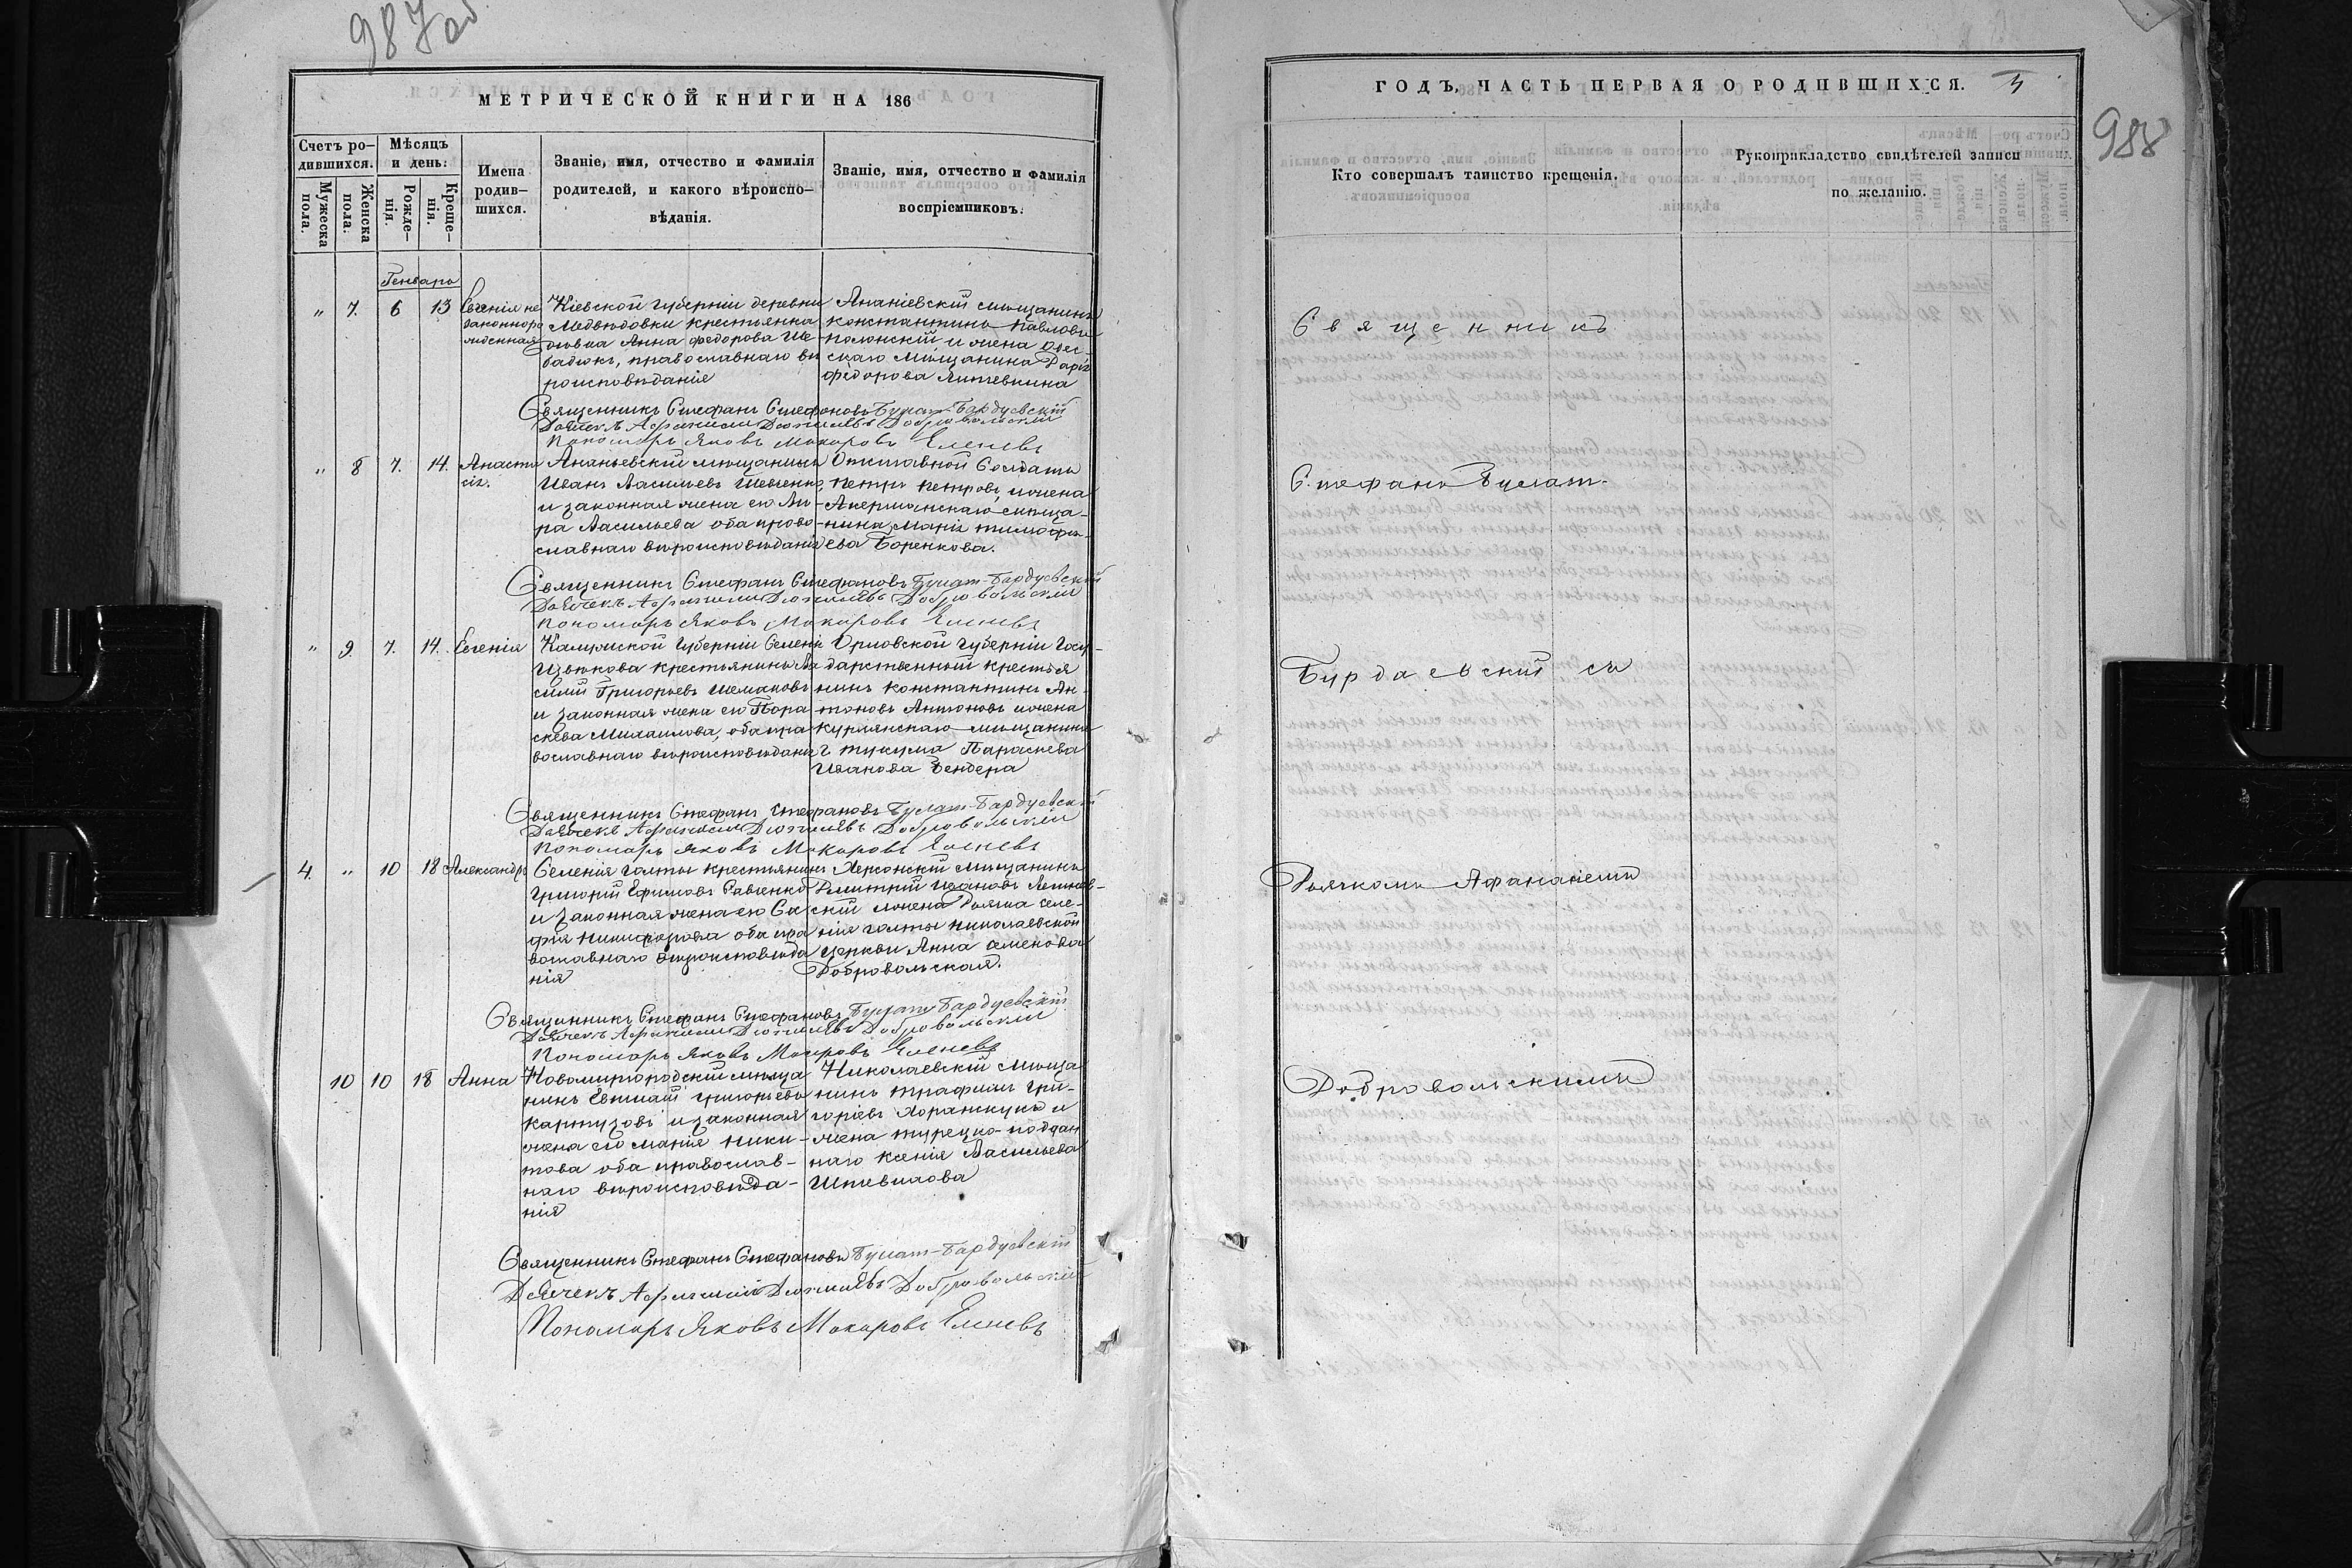 987об
МЕТРИЧЕСКОЙ КНИГИ НА 186
Счетъ ро-
дившихся.
Мужеска
пола.
Женска
пола.
Мѣсяцъ
и день:
Рожде-
нія.
Креще-
нія.
Имена
родив-
шихся.
Званіе, имя, отчество и фамилія
родителей, и какого вѣроиспо-
вѣданія.
Званіе, имя, отчество и фамилія
воспріемниковъ.
Генваря
" 7. 6 13 Евгенія не
законноро
жденная
Кіевской губерніи деревни
Медвѣдовки крестьянка
дѣвка Анна Федорова Ше
бадюкъ, православнаго вѣ
роисповѣданія
Ананіевскій мѣщанинъ
Константинъ Павловъ
Полонскій и жена Одес-
скаго мѣщанина Дарія
Федорова
Священникъ Стефанъ Стефановъ Булат-Бардуевскій
Дьячекъ Афанасій Добровольскій
Пономарь Яковъ Макаровъ Еленевъ
" 8 7. 14. Анаста
сія.
Ананьевскій мѣщанинъ
Иванъ Васильевъ Шевченко,
и законная жена его Ва-
ра Васильева оба право-
славнаго вѣроисповѣданія
Отставной Солдатъ
Петръ Петровъ, и жена
Акерманскаго мѣща-
нина Марія Тимофѣ-
ева Боренкова.
Священникъ Стефанъ Стефановъ Булат-Бардуевскій
Дьячекъ Афанасій Добровольскій
Пономарь Яковъ Макаровъ Еленевъ
" 9. 7. 14. Евгенія
Калужской губерніи Селенія
крестьянинъ Ва
силій Григорьевъ Шемановъ
и законная жена его Пара
скева Михаилова, оба пра
вославнаго вѣроисповѣданія
Орловской губерніи Госу-
дарственный крестья
нинъ Константинъ Ан-
тоновъ Антоновъ и жена
Курлянскаго мѣщанина
г. Тукума Параскева
Иванова Бендера
Священникъ Стефанъ Стефановъ Булат-Бардуевскій
Дьячекъ Афанасій Добровольскій
Пономарь Яковъ Макаровъ Еленевъ
4. " 10 18 Александръ
Селенія Голты крестьянинъ
Григорій Ефимовъ Савченко
и законная жена его Со
фія Никифорова оба пра
вославнаго вѣроисповѣда
нія
Херсонскій мѣщанинъ
Дмитрій Ивановъ
скій и жена Дьячка селе-
нія Голты Николаевской
церкви Анна Семенова
Добровольская.
Священникъ Стефанъ Стефановъ Булат-Бардуевскій
Дьячекъ Афанасій Добровольскій
Пономарь Яковъ Макаровъ Еленевъ
10 10 18 Анна
Новомиргородскій мѣща
нинъ Евтихій Григорьевъ
Картузовъ и законная
жена его Марія Ники-
това оба православ-
наго вѣроисповѣда-
нія
Николаевскій мѣща
нинъ Трафимъ Гри-
горіевъ и
жена турецко-поддан
наго Ксенія Васильева
Священникъ Стефанъ Стефановъ Булат-Бардуевскій
Дьячекъ Афанасій Добровольскій
Пономарь Яковъ Макаровъ Еленевъ
ГОДЪ, ЧАСТЬ ПЕРВАЯ О РОДИВШИХСЯ.
988
Кто совершалъ таинство крещенія.
Рукоприкладство свидѣтелей записи
по желанію.
Священникъ
Стефанъ Булат-
Бурдаевскій съ
Дьячкомъ Афанасіемъ
Добровольскимъ